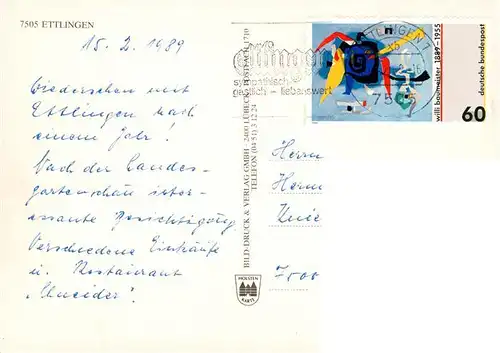 7505 ETTLINGEN
15.2.1989
Wiedersehen mit
Ettlingen nach
einem Jahr!
Nach der Landes-
gartenschau inter-
essante Besichtigung
Verschiedene Einkäufe
u. Restaurant
BILD-DRUCK & VERLAG GMBH · 2400 LÜBECK · POSTFACH 1710
TELEFON (04 51) 3 12 24
HOLSTEN
KARTE
Ettlingen
sympathisch
gastlich - liebenswert
ETTLINGEN 1
7505
willi baumeister 1889-1955
deutsche bundespost
60
Herrn
Herrn